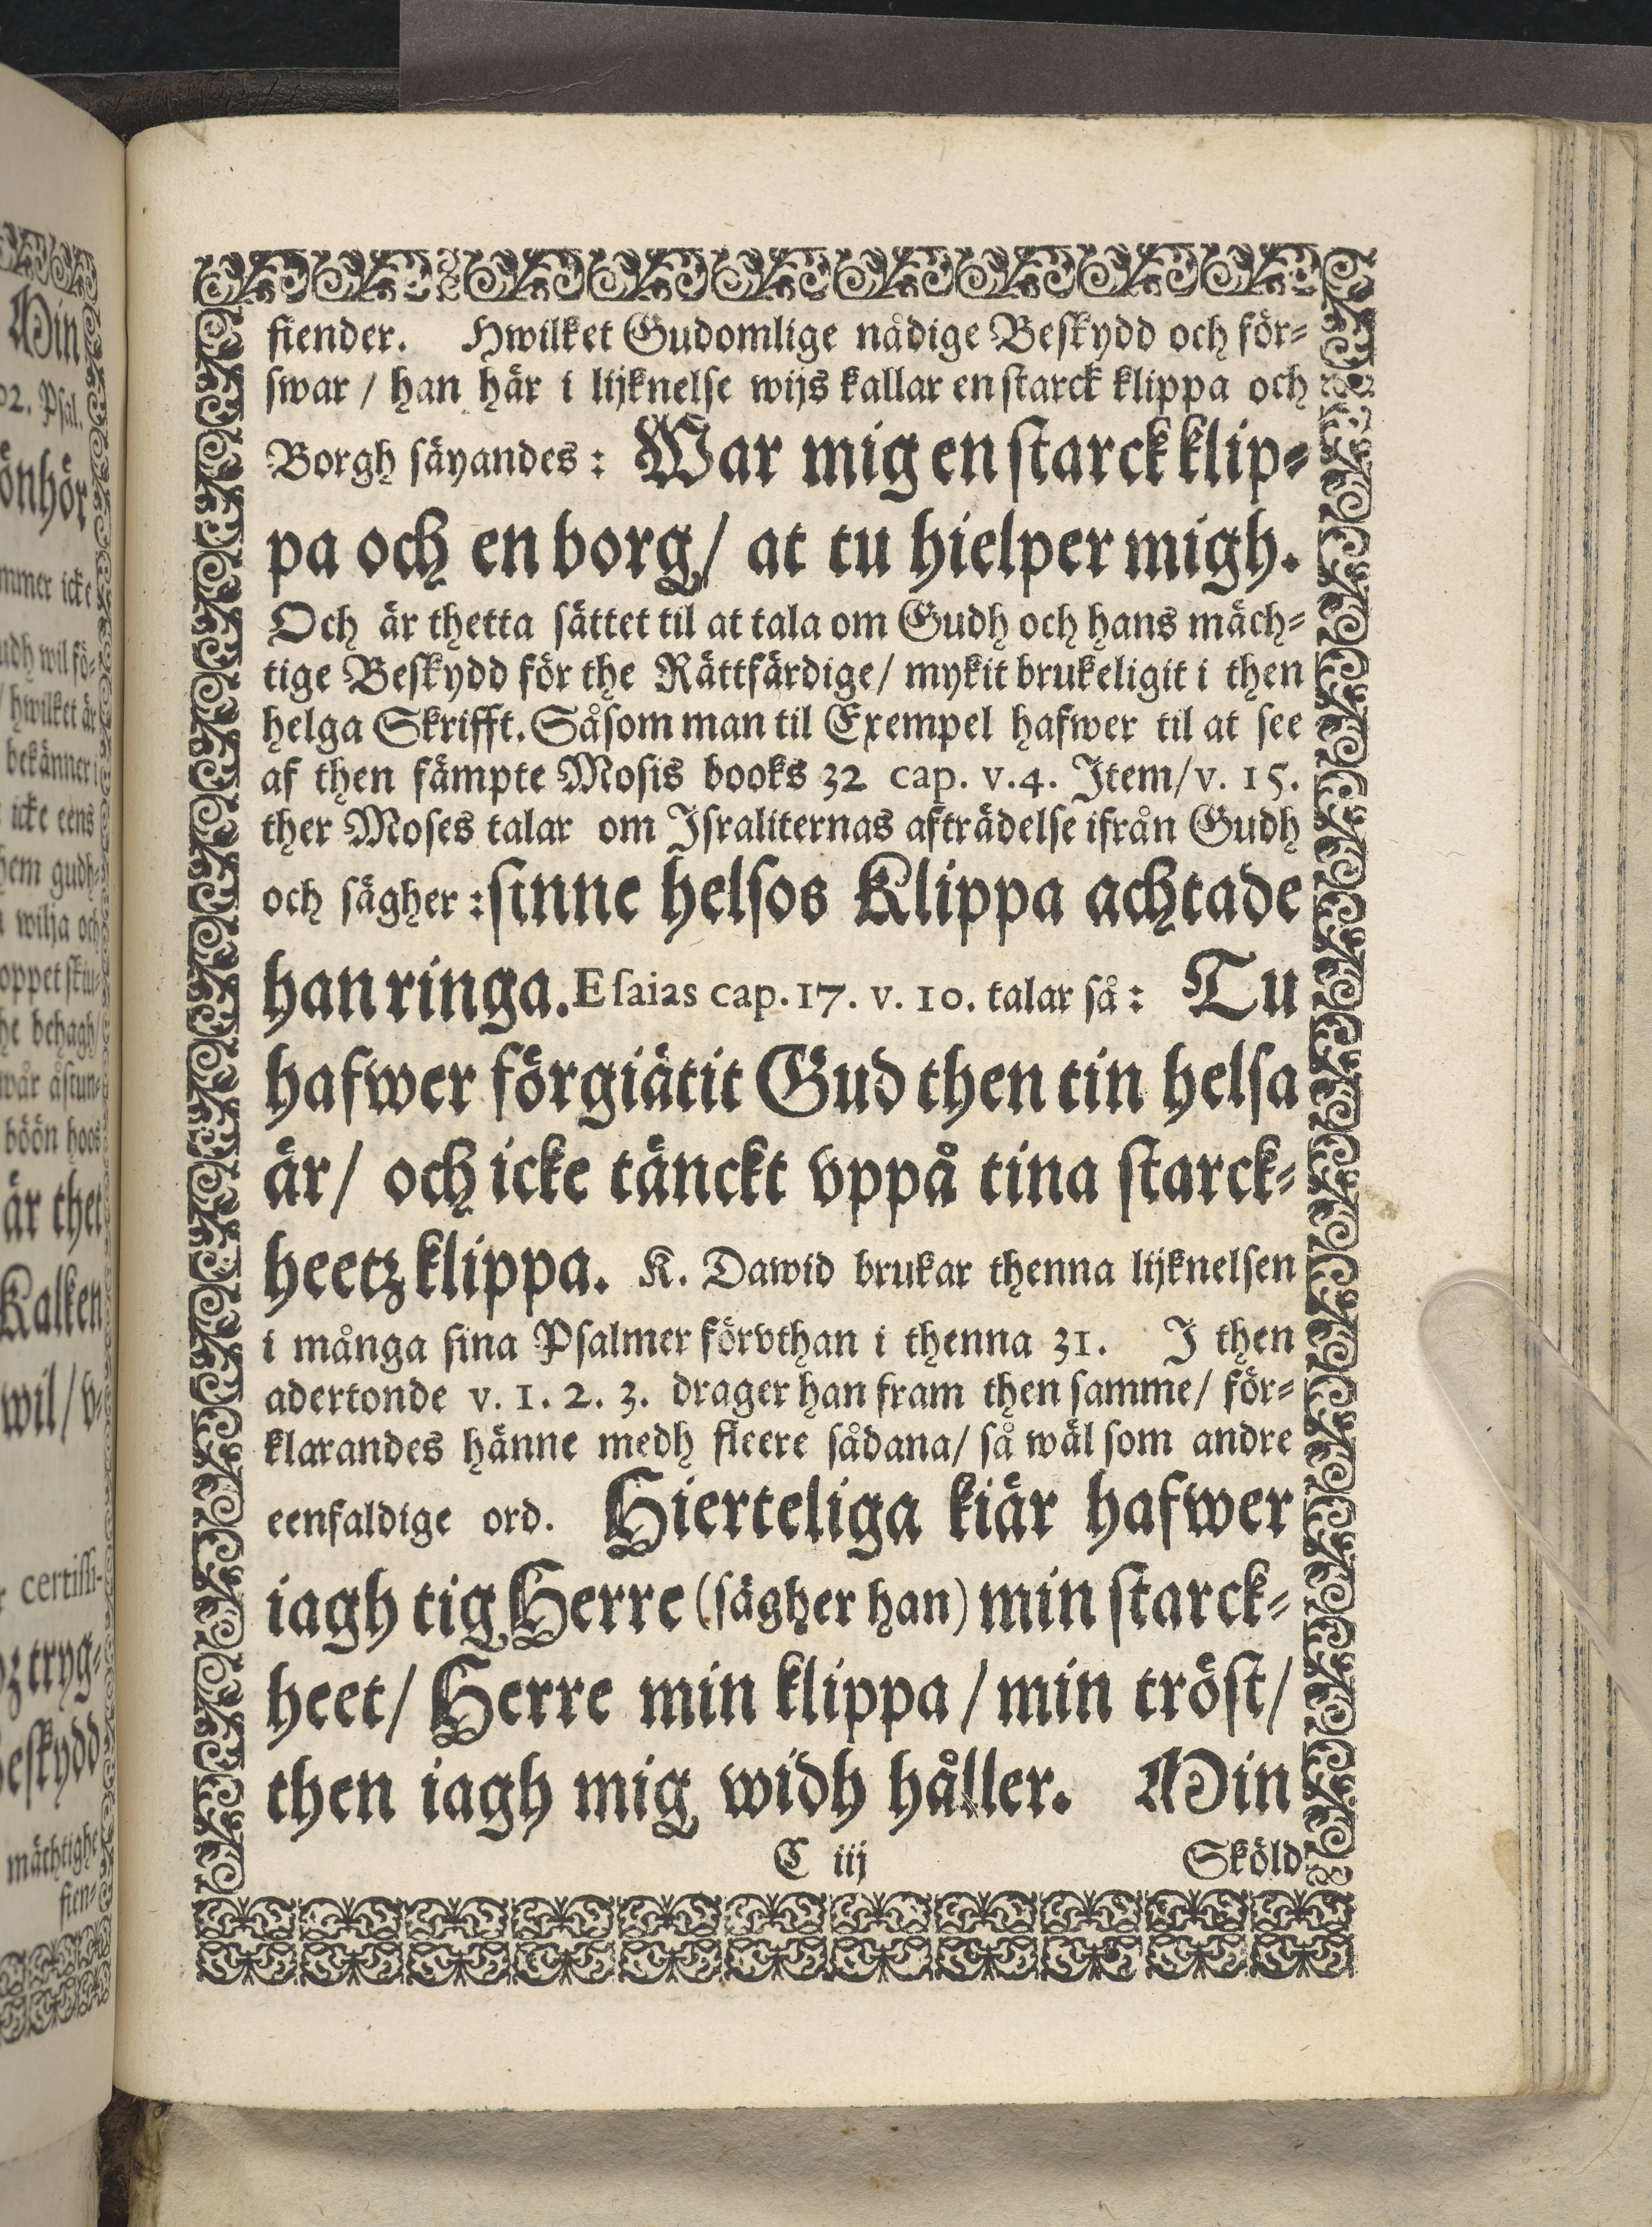 fiender. Hwilket Gudomlige nådige Beskydd och för-
swar / han här i lijknelse wijs kallar en starck klippa och
Borgh säyandes: War mig en starck klip-
pa och en borg/ at tu hielper migh.
Och är thetta sättet til at tala om Gudh och hans mäch-
tige Beskydd för the Rättfärdige/ mykit brukeligit i then
helga Skrifft. Såsom man til Exempel hafwer til at see
af then fämpte Mosis books 32 cap. v. 4. Item/ v. 15.
ther Moses talar om Israliternas afträdelse ifrån Gudh
och sägher: sinne helsos Klippa achtade
han ringa. Esaias cap. 17. v. 10. talar så: Tu
hafwer förgiätit Gud then tin helsa
är/ och icke tänckt vppå tina starck-
heetz klippa. K. Dawid brukar thenna lijknelsen
i många sina Psalmer förvthan i thenna 31. I then
adertonde v. 1. 2. 3. drager han fram then samme/ för-
klarandes hänne medh fleere sådana/ så wäl som andre
eenfaldige ord. Hierteliga kiär hafwer
iagh tig Herre (sägher han) min starck-
heet/ Herre min klippa / min tröst/
then iagh mig widh håller. Min
C iij Sköld
Min
02. Psal.
önhör
mmer icke
udh wil fö-
/ hwilket är
bekänner i
icke eens
hem gudh-
wilja och
oppet skiu-
he behagh/
wår åstun-
böön hoos
är thet
Kalken
wil/ v-
certissi-
z tryg-
Beskydd
mächtighe
fien-